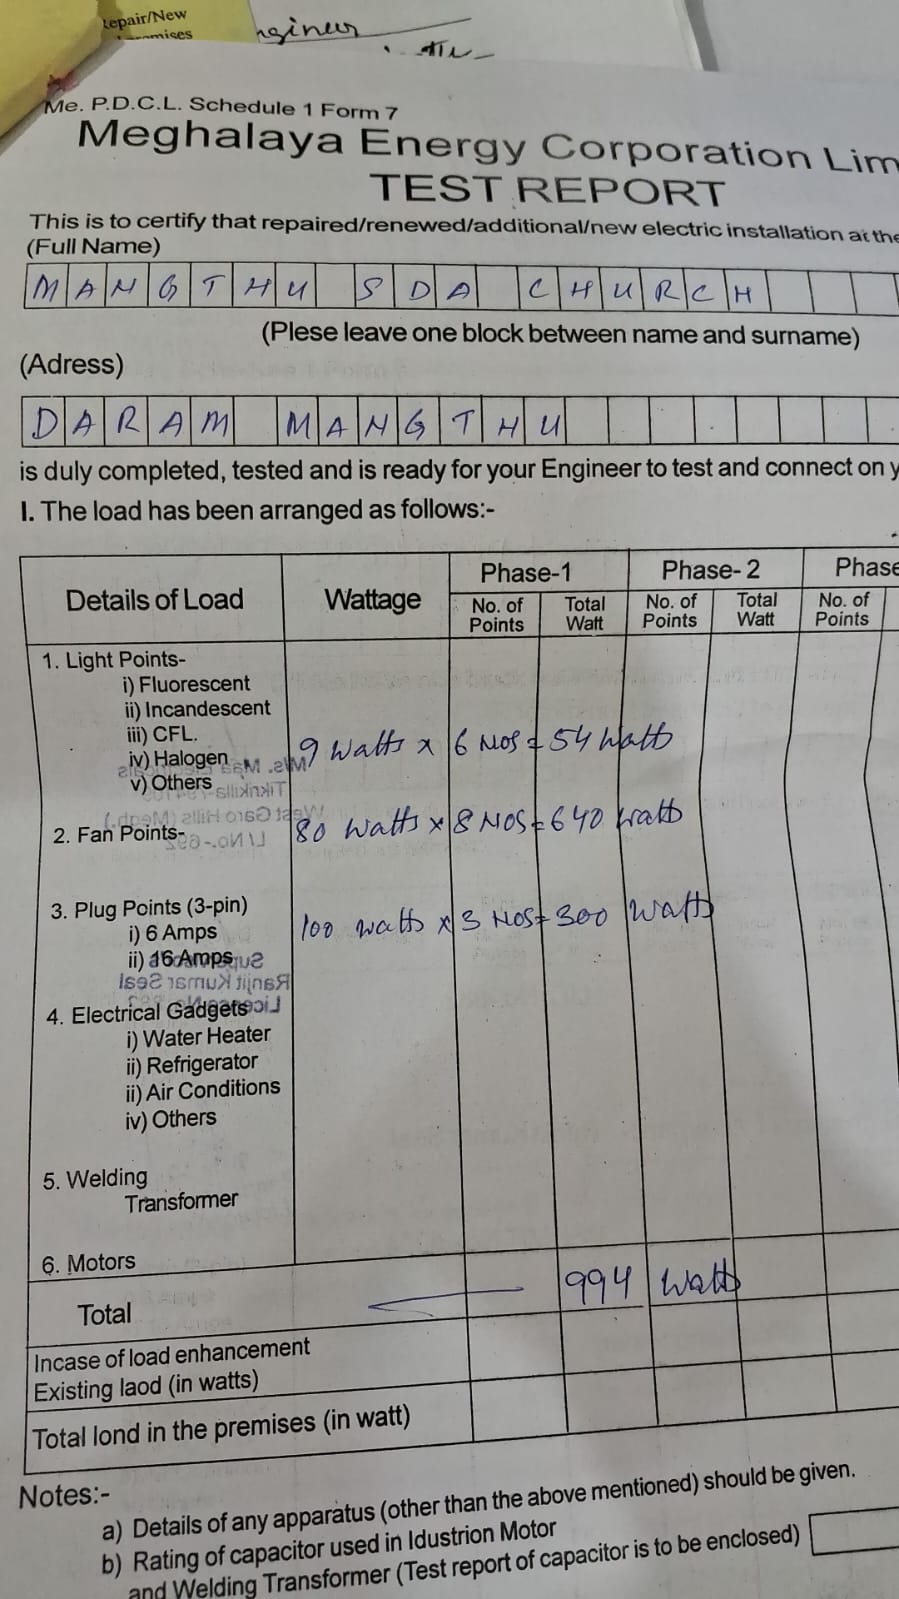 Repair/New
ngineer
Me. P.D.C.L. Schedule 1 Form 7
Meghalaya Energy Corporation Lim
TEST REPORT
This is to certify that repaired/renewed/additional/new electric installation at the
(Full Name)
MANGTHU SDA CHURCH
(Plese leave one block between name and surname)
(Adress)
DARAM MANGTHU
is duly completed, tested and is ready for your Engineer to test and connect on y
I. The load has been arranged as follows:-
Details of Load Wattage Phase-1 Phase-2 Phase
No. of Points Total Watt No. of Points Total Watt No. of Points
1. Light Points-
i) Fluorescent
ii) Incandescent
iii) CFL.
iv) Halogen 9 Watts x 6 Nos = 54 Watts
v) Others
2. Fan Points- 80 Watts x 8 Nos = 640 Watts
3. Plug Points (3-pin)
i) 6 Amps 100 watts x 3 Nos = 300 Watts
ii) 16 Amps
4. Electrical Gadgets
i) Water Heater
ii) Refrigerator
ii) Air Conditions
iv) Others
5. Welding
Transformer
6. Motors
Total 994 Watts
Incase of load enhancement
Existing laod (in watts)
Total lond in the premises (in watt)
Notes:-
a) Details of any apparatus (other than the above mentioned) should be given.
b) Rating of capacitor used in Idustrion Motor
and Welding Transformer (Test report of capacitor is to be enclosed)